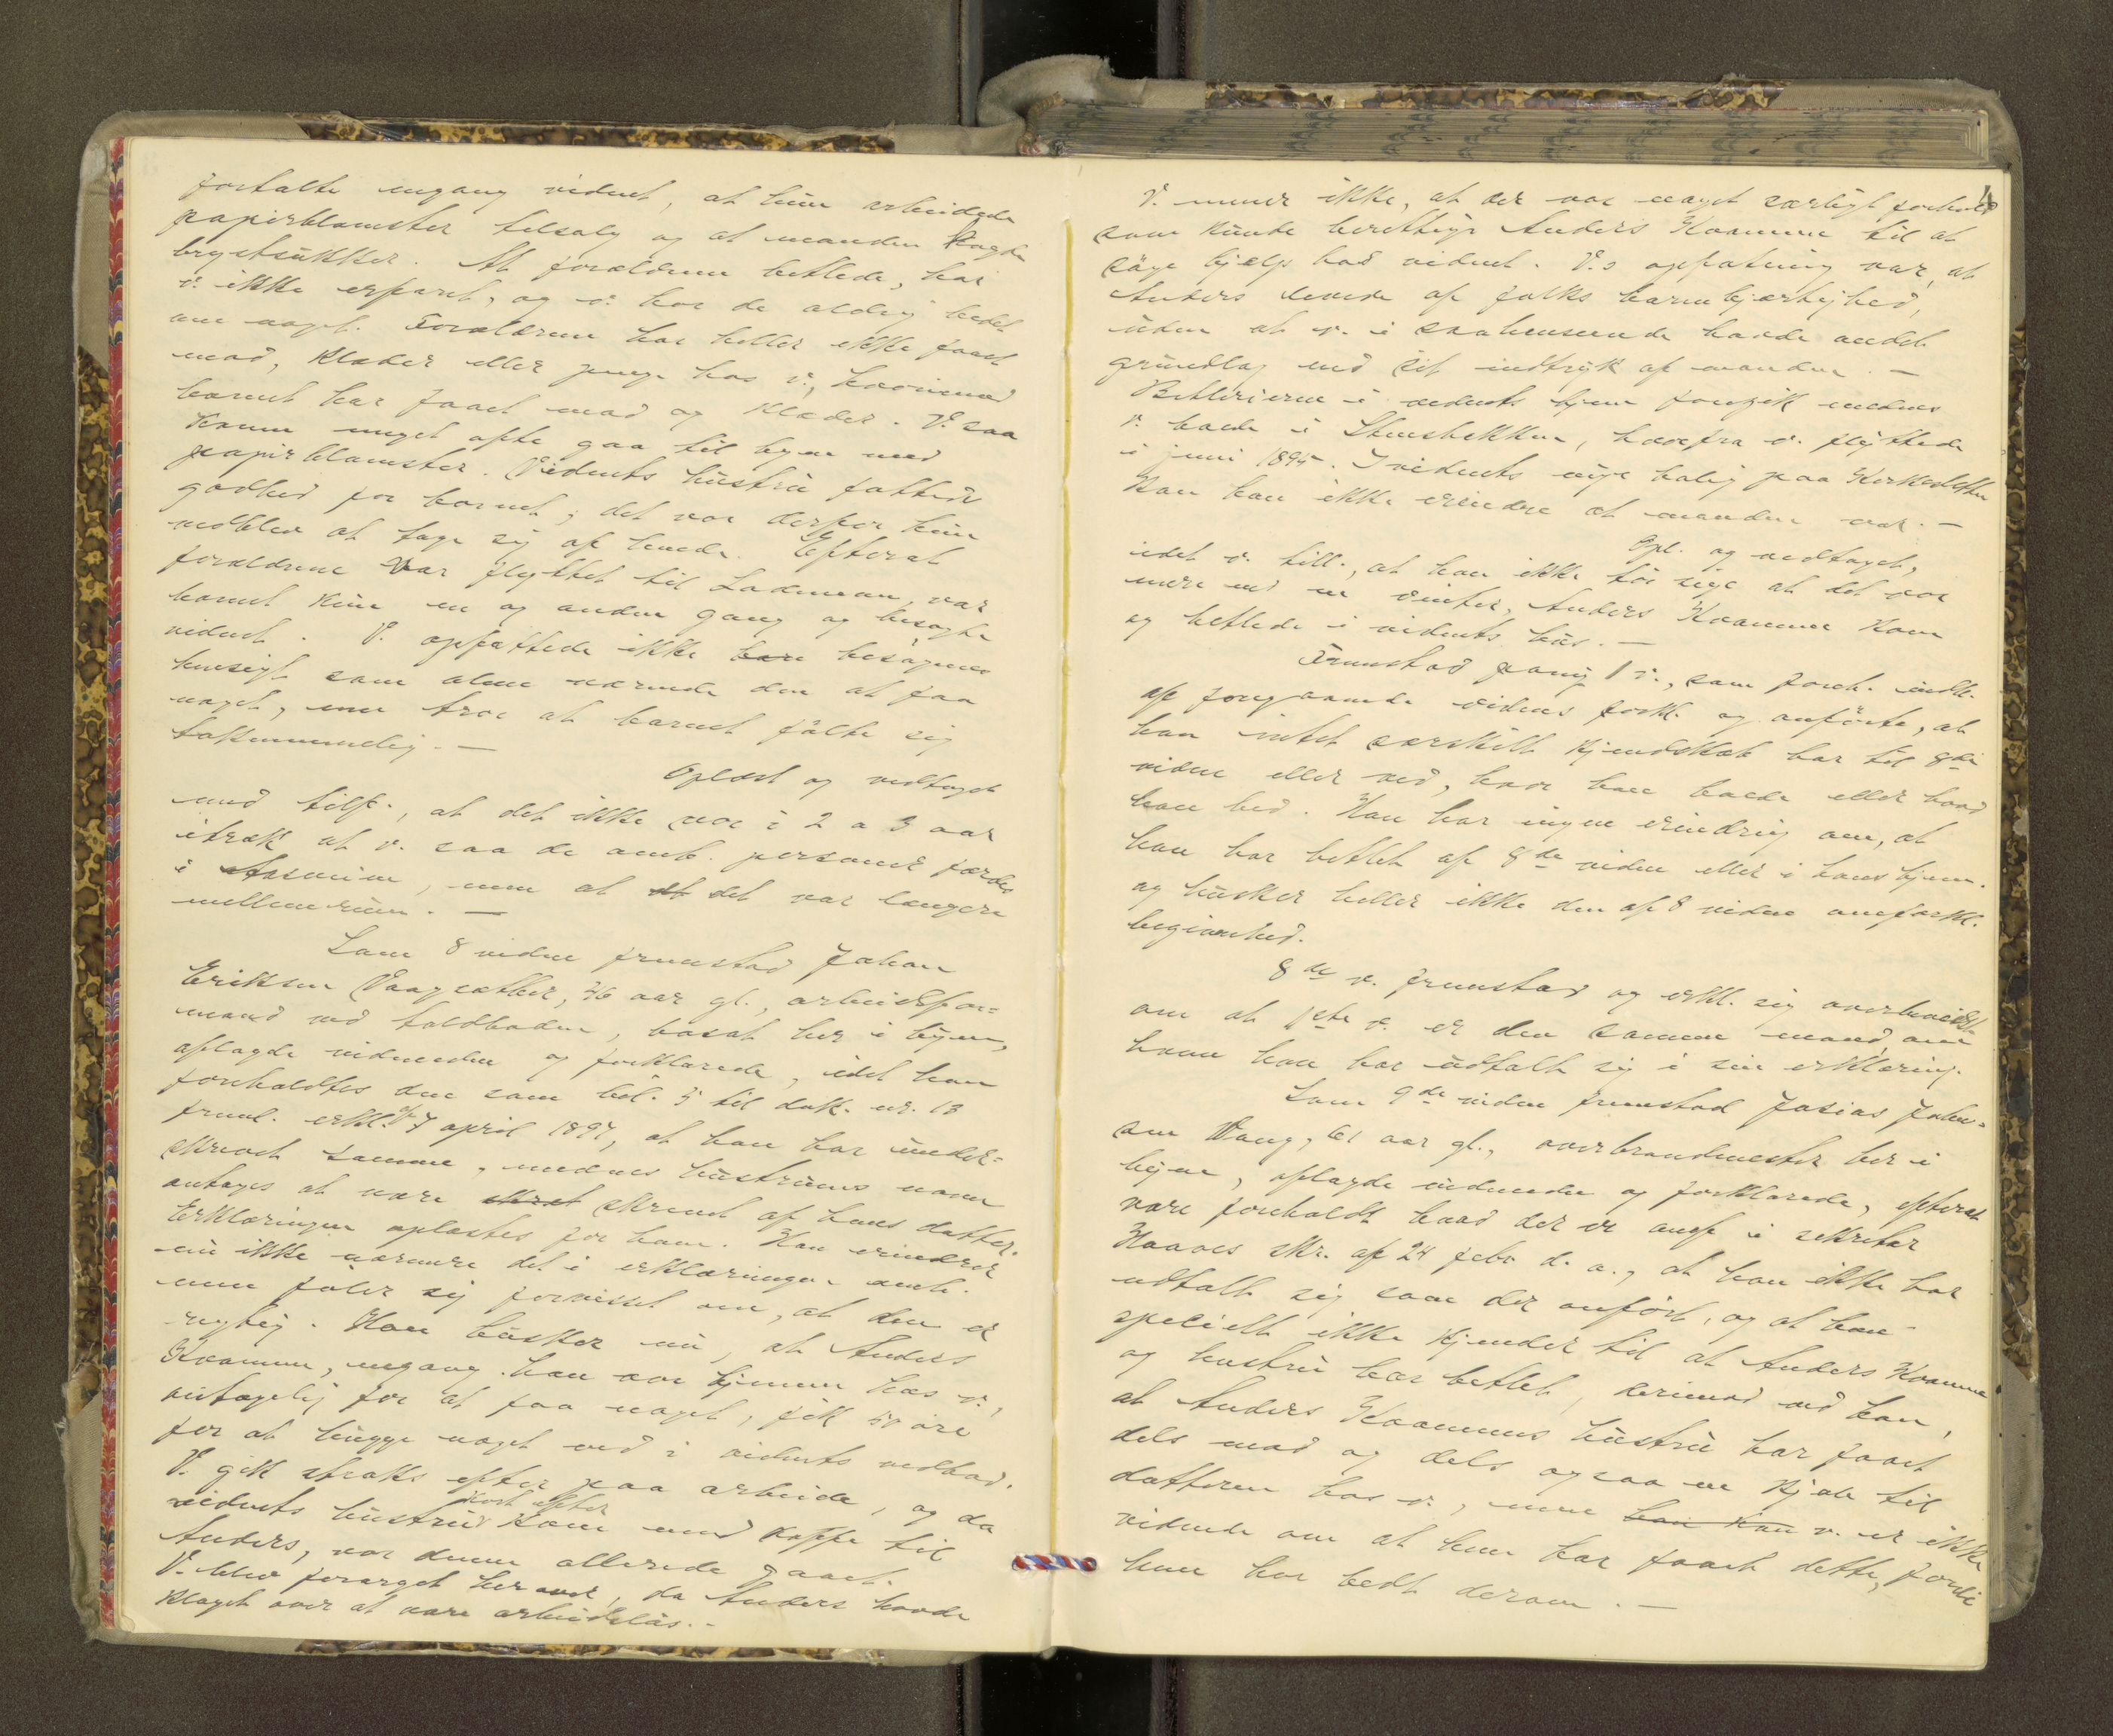 fortalte engang vidnet, at hun arbeidede
papirblomster tilsalg og at manden kogte
brystsukker. At forældrene betlede, har
v. ikke erfaret, og v. har de aldrig bedet
om noget. Forældrene har heller ikke faaet
mad, klæder eller penge hos v., hvorimod
barnet har faaet mad og klæder. V. saa
konen meget ofte gaa til byen med
papirblomster. Vidnets hustru fattede
godhed for barnet; det var derfor hun
vedblev at tage sig af hende. Efterat
forældrene var flyttet til Lademoen, var
barnet kun en og anden gang og besøgte
vidnet. V. opfattede ikke besøgenes
hensigt som alene værende den at faa
noget, men tror at barnet følte sig
taknemmelig. —
Oplæst og vedtaget
med tilf., at det ikke var i 2 a 3 aar
itræk at v. saa de omh. personer færdes
i Aasveien, men at det var længere
mellemrum. —
Som 8 vidne fremstod Johan
Eriksen Vaagsæther, 46 aar gl., arbeidsfor=
mand ved toldboden, bosat her i byen,
aflagde vidneeden og forklarede, idet han
foreholdtes den som bil. 5 til dok. nr. 13
freml. erkl. af 7 april 1897, at han har under=
skrevet samme, medens hustruens navn
antages at være skrevet af hans datter.
Erklæringen oplæstes for ham. Han erindrer
nu ikke nærmere det i erklæringen omh.
men føler sig forvisset om, at den er
rigtig. Han husker nu, at Anders
Kvamme, engang han var hjemme hos v.,
antagelig for at faa noget, fik 50 øre
for at hugge noget ved i vidnets vedbod.
V. gik straks efter paa arbeide, og da
vidnets hustru kort efter kom med kaffe til
Anders, var denne allerede gaaet.
V. blev forarget herover, da Anders havde
klaget over at være arbeidsløs. -
4
V. mener ikke, at der var noget særligt forhold
som kunde berettige Anders Kvamme til at
søge hjælp hos vidnet. V.s opfatning var, at
Anders levede af folks barmhjertighed,
uden at v. i saahenseende havde andet
grundlag end sit indtryk af manden. —
Betlerierne i vidnets hjem foregik medens
v. boede i Stensbakken, hvorfra v. flyttede
i juni 1895. I vidnets nye bolig paa Kirkesletten
kan han ikke erindre at manden var. —
Opl. og vedtaget,
idet v. till., at han ikke tør sige at det var
mere end en vinter, Anders Kvamme kom
og betlede i vidnets hus. —
Fremstod paany 1 v., som foreh. indh.
af foregaaende vidnes forkl. og anførte, at
han intet særskilt kjendskab har til 8de
vidne eller ved, hvor han boede eller hvad
han hed. Han har ingen erindring om, at
han har betlet af 8de vidne eller i hans hjem.
og husker heller ikke den af 8 vidne omforkl.
begivenhed.
8de v. fremstod og erkl. sig overbevist
om at 1ste v. er den samme mand, om
hvem han har udtalt sig i sin erklæring.
Som 9de vidne fremstod Josias John=
sen Vang, 61 aar gl., overbrandmester her i
byen, aflagde vidneeden og forklarede, efterat
være foreholdt hvad der er anf. i sekretær
Haaves skr. af 24 febr d. a., at han ikke har
udtalt sig som der anført, og at han
specielt ikke kjender til at Anders Kvamme
og hustru har betlet, derimod ved han,
at Anders Kvammes hustru har faaet
dels mad og dels ogsaa en kjole til
datteren hos v., men v. er ikke
vidende om at hun har faaet dette, fordi
hun har bedt derom. —